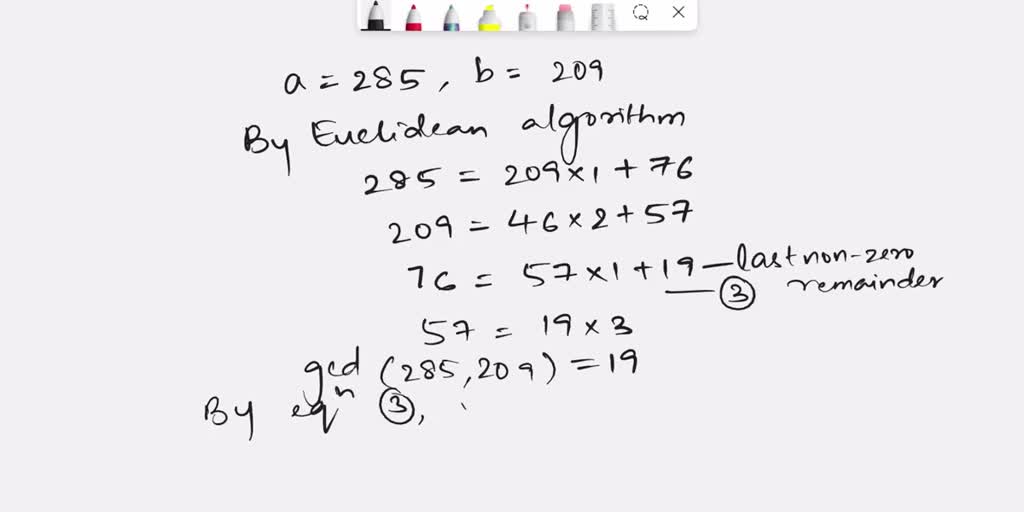 a = 285, b = 209
By Euclidean algorithm
285 = 209×1 + 76
209 = 46×2 + 57
76 = 57×1 + 19 — last non-zero remainder
③
57 = 19×3
gcd (285, 209) = 19
By eqn ③,